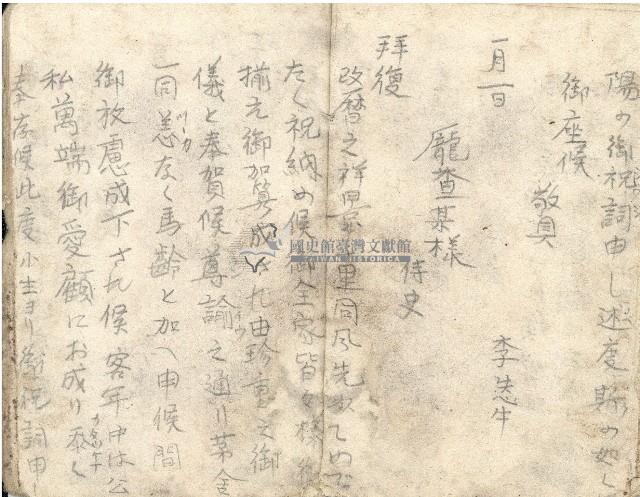 陽の御祝詞申し述度斯の如く
御座候 敬具
一月一日
李志牛
龐査某様
侍史
拝復
改暦之祥 里同風先以てめで
たく祝納め候 御全家皆々様御
揃え御加算成され由珍重之御
儀と奉賀候尊諭之通り茅舎
一同恙なく馬齢と加へ申候間
御放慮成下され候客年中は公
私萬端御愛顧にお成り忝く
奉存候此度小生ヨリ 祝詞申
國史館臺灣文獻館
TAIWAN HISTORICA